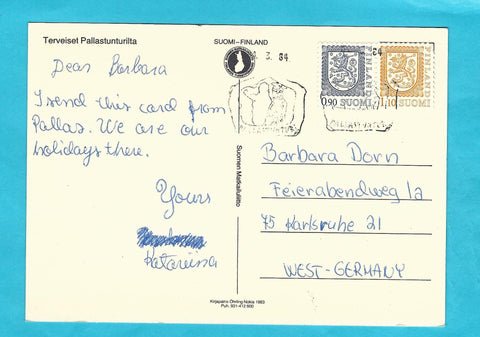 Terveiset Pallastunturilta
SUOMI-FINLAND
3. 84
84
FINLAND
0,90 SUOMI
FINLAND
1,10 SUOMI
Dear Barbara
I send this card from
Pallas. We are our
holidays there.
Yours
Katariissa
Suomen Matkailuliitto
Barbara Dorn
Feierabendweg 1a
75 Karlsruhe 21
WEST-GERMANY
Kirjapaino Öhrling Nokia 1983
Puh. 931-412 600